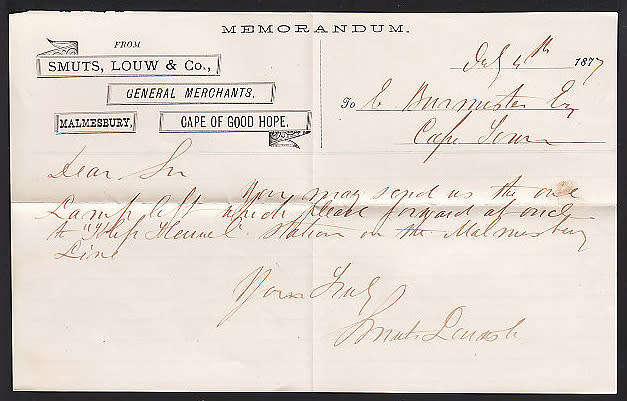 MEMORANDUM.
FROM
SMUTS, LOUW & Co.,
GENERAL MERCHANTS,
MALMESBURY, CAPE OF GOOD HOPE.
July 4th 1877
To C Burmester Esq
Cape Town
Dear Sir
You may send us the one
Lamp left which please forward at once
to "Klip Heuvel" Station on the Malmesbury
Line
Yours Truly
Smuts Louw & Co